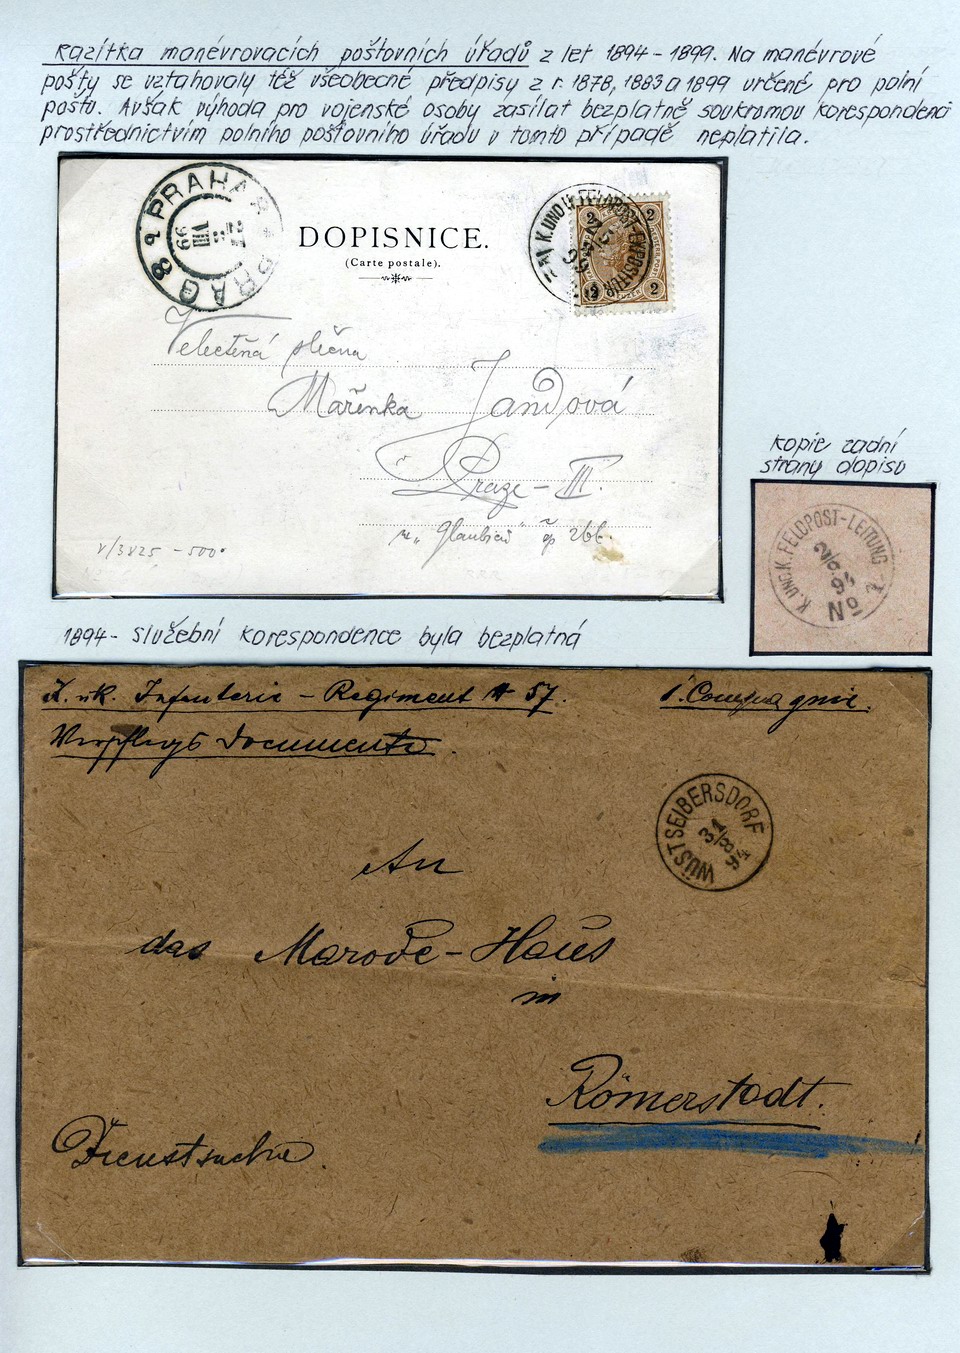 Razítka manévrovacích poštovních úřadů z let 1894-1899. Na manévrové
pošty se vztahovaly též všeobecné předpisy z r. 1878, 1883 a 1899 určené pro polní
poštu. Avšak výhoda pro vojenské osoby zasílat bezplatně soukromou korespondenci
prostřednictvím polního poštovního úřadu v tomto případě neplatila.
PRAHA
PRAG
VIII
99
DOPISNICE.
(Carte postale).
K. UND K. FELDPOST-EXPOSITUR
2 2
2 2
Velectěná slečna
Mařenka Jandová
Prag - III.
čp 266.
V/3 V25 -500.
kopie zadní
strany dopisu
K. UND K. FELDPOST-LEITUNG
2/9
94
No 1
1894 - služební korespondence byla bezplatná
K. u. k. Infanterie - Regiment № 57. 1. Compagnie.
Verpflegs Documente.
WÜSTSEIBERSDORF
31/8
94
An
das Marode-Haus
in
Römerstadt.
Dienstsache